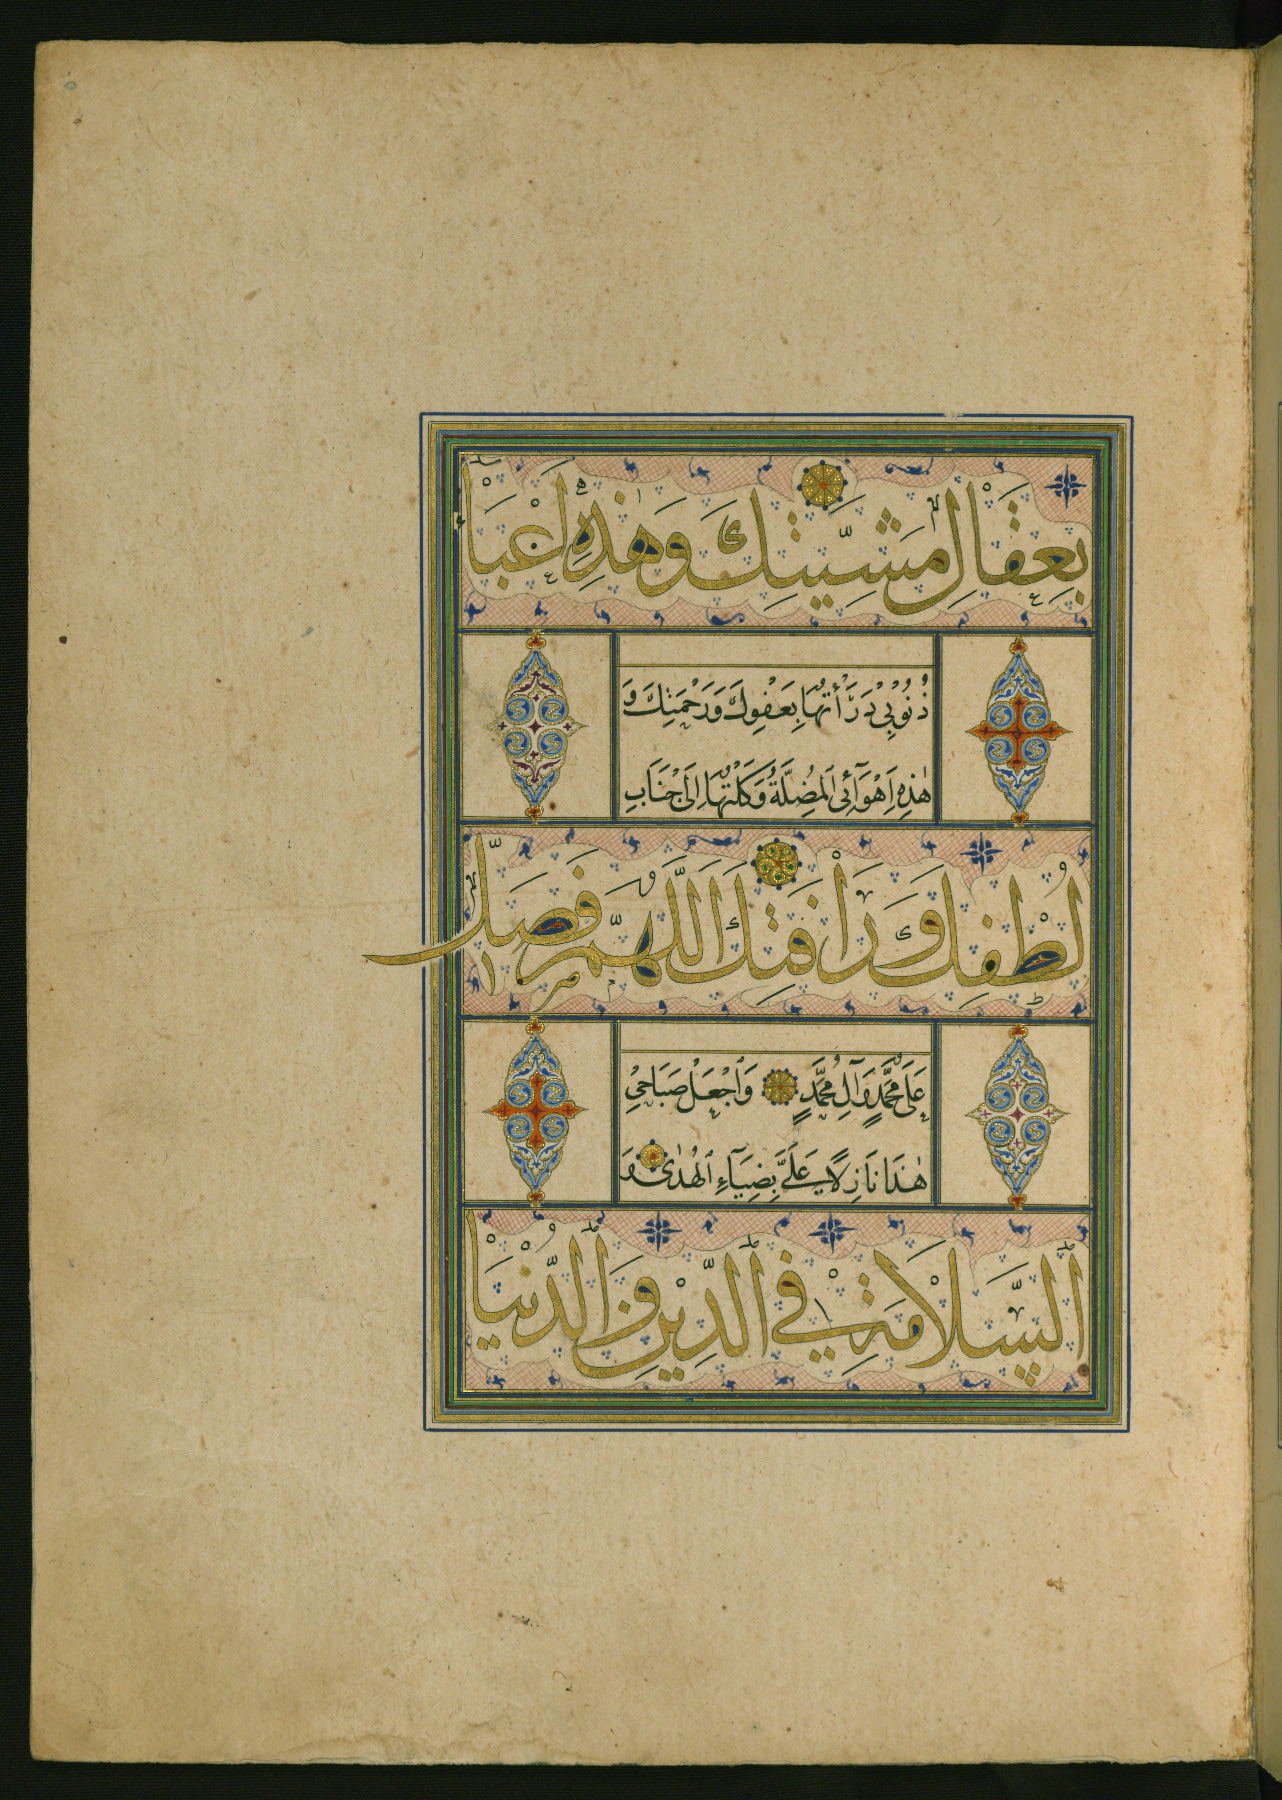 بِعِقَالِ مَشِيَّتِكَ وَهٰذِهِ اَعْبَآءُ
ذُنُوْبِيْ دَرَأْتُهَا بِعَفْوِكَ وَرَحْمَتِكَ وَ
هٰذِهِ اَهْوَآئِى الْمُضِلَّةُ وَكَلْتُهَا اِلَىٰ جَنَابِ
لُطْفِكَ وَرَأْفَتِكَ اَللّٰهُمَّ فَصَلِّ
عَلَىٰ مُحَمَّدٍ وَآلِ مُحَمَّدٍ وَاجْعَلْ صَبَاحِيْ
هٰذَا نَازِلًا عَلَيَّ بِضِيَآءِ الْهُدٰى وَ
السَّلَامَةِ فِي الدِّيْنِ وَالدُّنْيَا